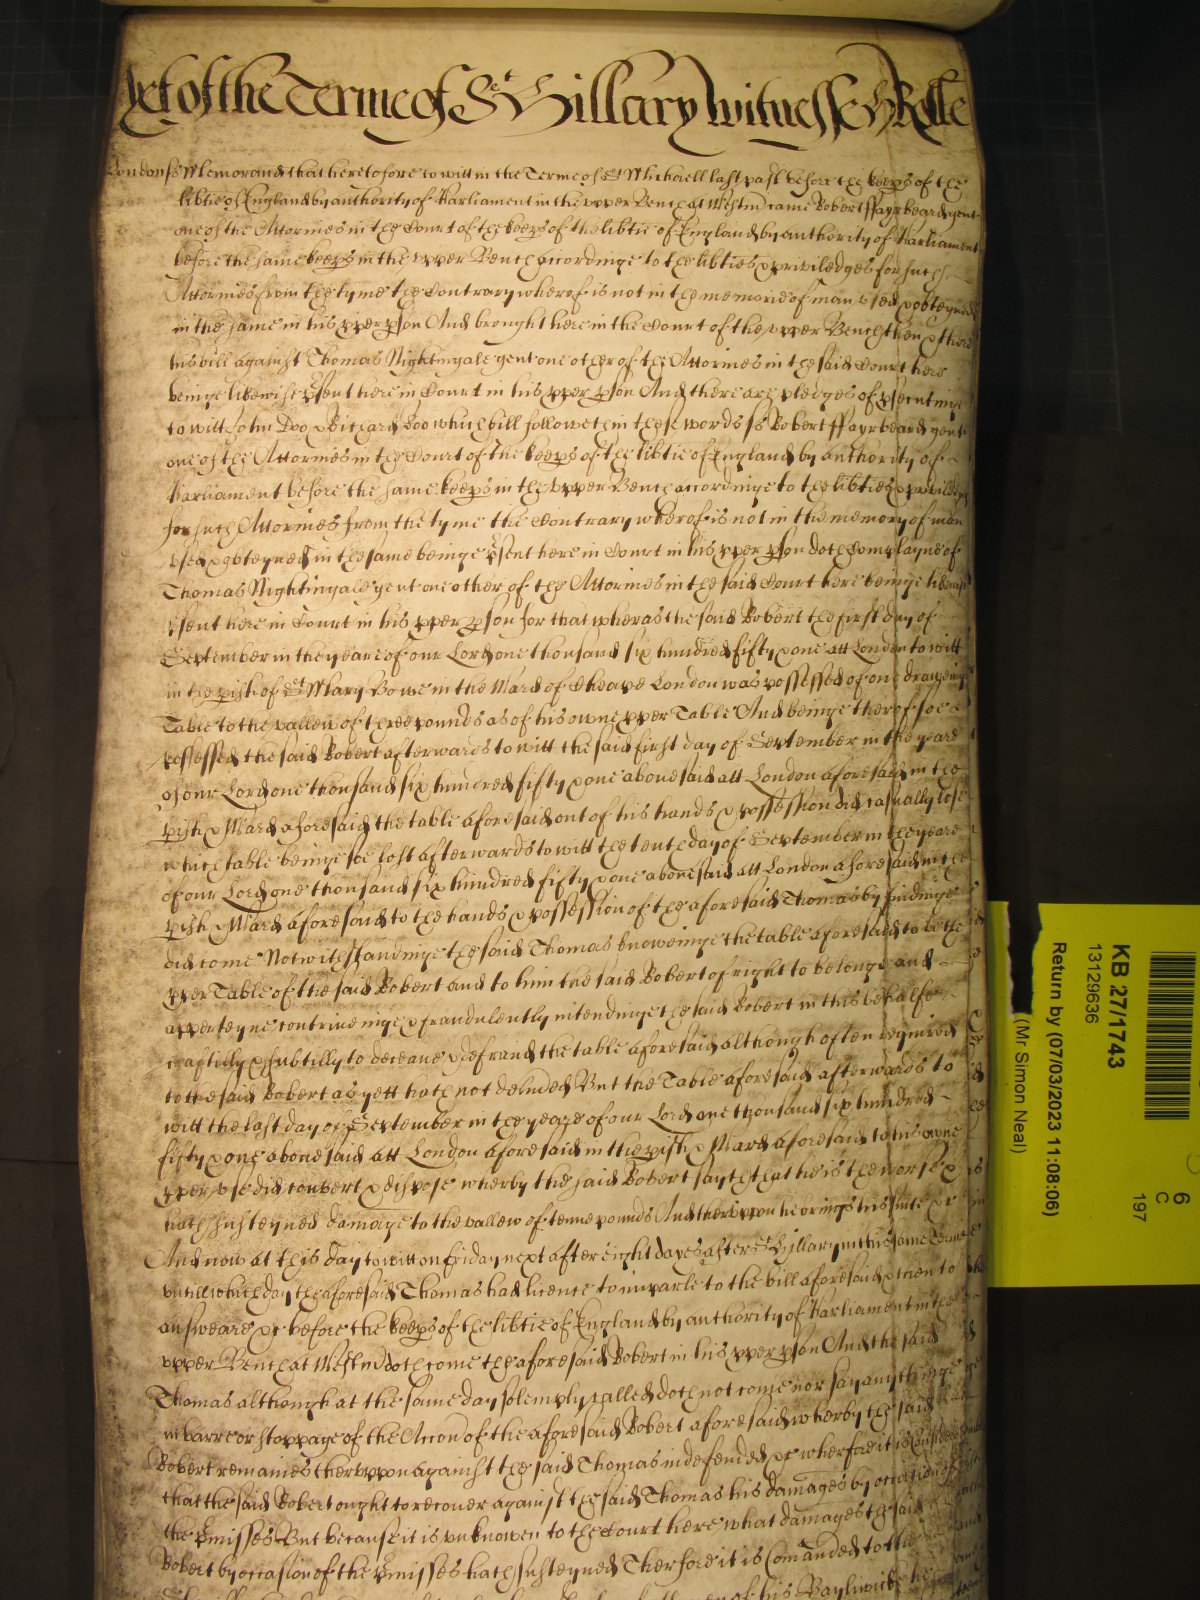 yet of the Terme of St Hillary witnesse H Rolle
London ss Memorand that heretofore to witt in the Terme of St Michaell last past before the keeps of the
libtie of England by authority of Parliament in the upper Bench at Westm came Robert ffayrbeard gent
one of the Attornies in the Court of the keeps of the libtie of England by authority of Parliament
before the same keeps in the upper Bench accordinge to the libties & priviledges for such
Attornies from the tyme the Contrary wherof is not in the memorie of man used & obteyned
in the same in his pper pson And brought here in the Court of the upper Bench then & there
his bill against Thomas Nightingale gent one other of the Attornies in the said Court here
beinge likewise psent here in Court in his pper pson And there are pledges of psecutinge
to witt John Doo & Richard Roo which bill followeth in these words ss Robert ffayrbeard gent
one of the Attornies in the Court of the keeps of the libtie of England by authority of
Parliament before the same keeps in the upper Bench accordinge to the libties & priviledges
for such Attornies from the tyme the Contrary wherof is not in the memory of man
used & obteyned in the same beinge psent here in Court in his pper pson doth Complayne of
Thomas Nightingale gent one other of the Attornies in the said Court here beinge likewise
psent here in Court in his pper pson for that wheras the said Robert the first day of
September in the yeare of our Lord one thousand six hundred fifty & one att London to witt
in the pish of St Mary Bowe in the Ward of Cheape London was possessed of one draweinge
Table to the vallew of three pounds as of his owne pper Table And beinge therof soe
possessed the said Robert afterwards to witt the said first day of September in the yeare
of our Lord one thousand six hundred fifty & one abovesaid att London aforesaid in the
pish & Ward aforesaid the table aforesaid out of his hands & possession did casually lose
which table beinge soe lost afterwards to witt the tenth day of September in the yeare
of our Lord one thousand six hundred fifty & one abovesaid att London aforesaid in the
pish & Ward aforesaid to the hands & possession of the aforesaid Thomas by findinge
did come Notwithstandinge the said Thomas knoweinge the table aforesaid to be the
pper Table of the said Robert and to him the said Robert of right to belonge and
apperteyne contriveinge & fraudulently intendinge the said Robert in this behalfe
craftily & subtilly to deceave & defraud the table aforesaid although often required
to the said Robert as yett hath not delived But the Table aforesaid afterwards to
witt the last day of September in the yeare of our Lord one thousand six hundred
fifty & one abovesaid att London aforesaid in the pish & Ward aforesaid to his owne
pper use did convert & dispose wherby the said Robert sayth that he is the worse &
hath susteyned damage to the vallew of tenne pounds And therupon he brings his suite &c
And now at this day to witt on friday next after eight dayes after St Hillary in this same Terme
untill which day the aforesaid Thomas had licence to imparle to the bill aforesaid & then to
answeare &c before the keeps of the libtie of England by authority of Parliament in the
upper Bench at Westm doth come the aforesaid Robert in his pper pson And the said
Thomas although at the same day solemply called doth not come nor say any thinge
in barre or stoppage of the Accon of the aforesaid Robert aforesaid wherby the said
Robert remaines therupon against the said Thomas indefended &c wherfore it is considered
that the said Robert ought to recover against the said Thomas his damages by occasion of
the pmisses But because it is unknowen to the Court here what damages the said
Robert by occasion of the pmisses hath susteyned Therfore it is Comanded to the
of his Bayliwicke he
KB 27/1743
13129636
Return by (07/03/2023 11:08:06)
(Mr Simon Neal)
6
C
197